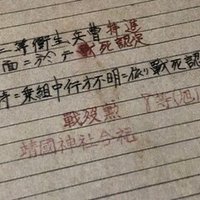 二等衛生兵曹特進
面ニ於テ戦死認定
時ニ乗組中行方不明ニ依リ戦死認
戦没勲
靖國神社合祀